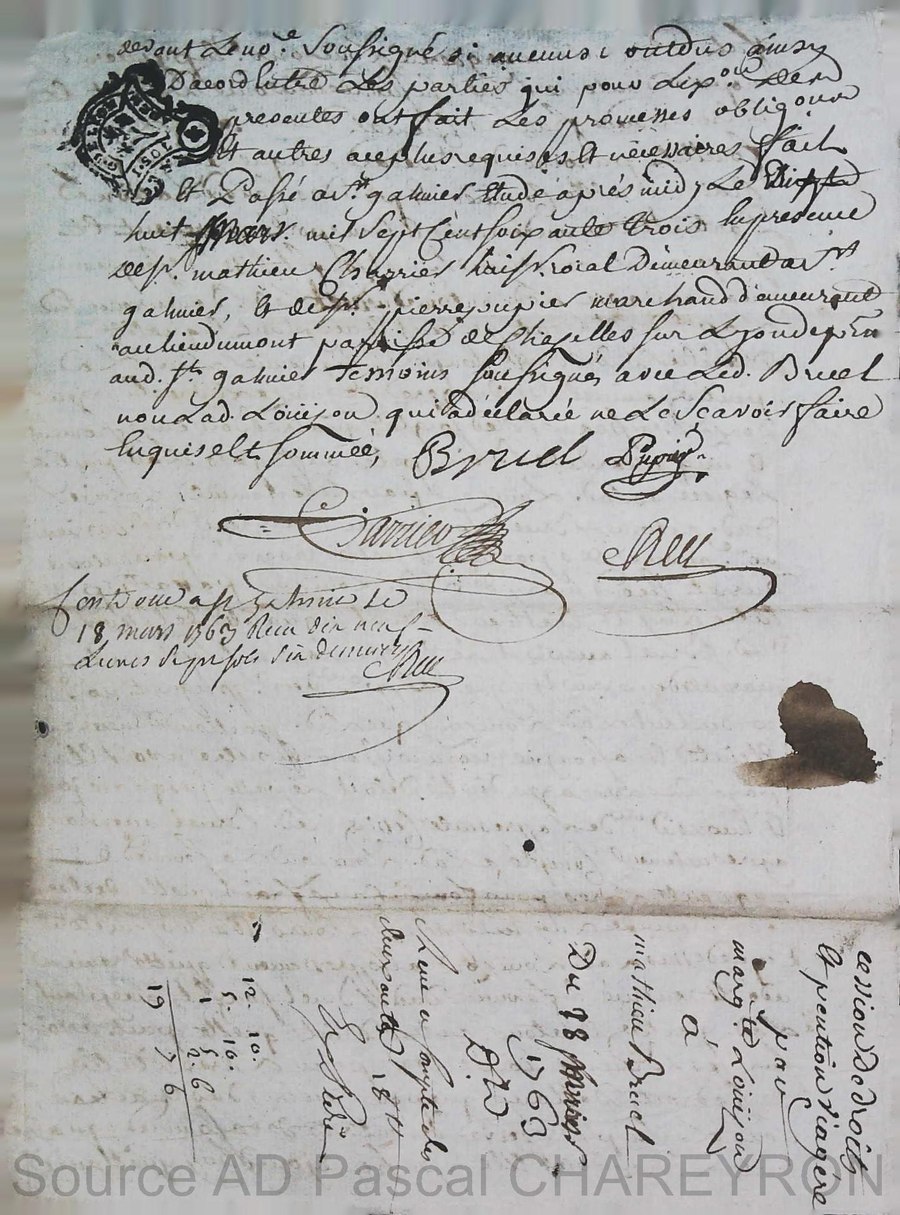 devant le no.e soussigné si aucuns ont dus ainsy
D'acord entre les parties qui pour l'ex.on des
presentes ont fait les promesses obligõns
Et autres acep.. requises et nécessaires fait
Et Passé a s.t galmier Etude aprés midy Le
huit mars mil sept Cent soixante trois En presence
de s.r mathieu Charrier huiss.r roial demeurant a s.t
galmier, Et de s.r pierre pupier marchand demeurant
au lieu dumont parroisse de Chazelles sur Lyon de pñt
aud. s.t galmier Temoins soussignés avec led. Bruel
non Lad. Louijon qui a déclarée ne Le Scavoir faire
Enquise Et sommée,   Bruel   Pupier
Charrier   Reu
Controllé a s.t galmier Le
18 mars 1763 Recu dix neuf
Livres sept sols six deniers Reu
cession de droits
Et pention viagère
par
marg.te Louijon
à
mathieu Bruel
Du 18 mars
1763
12. 10.
5. 10.
1 5
2. 6
19 7 6
Source AD Pascal CHAREYRON